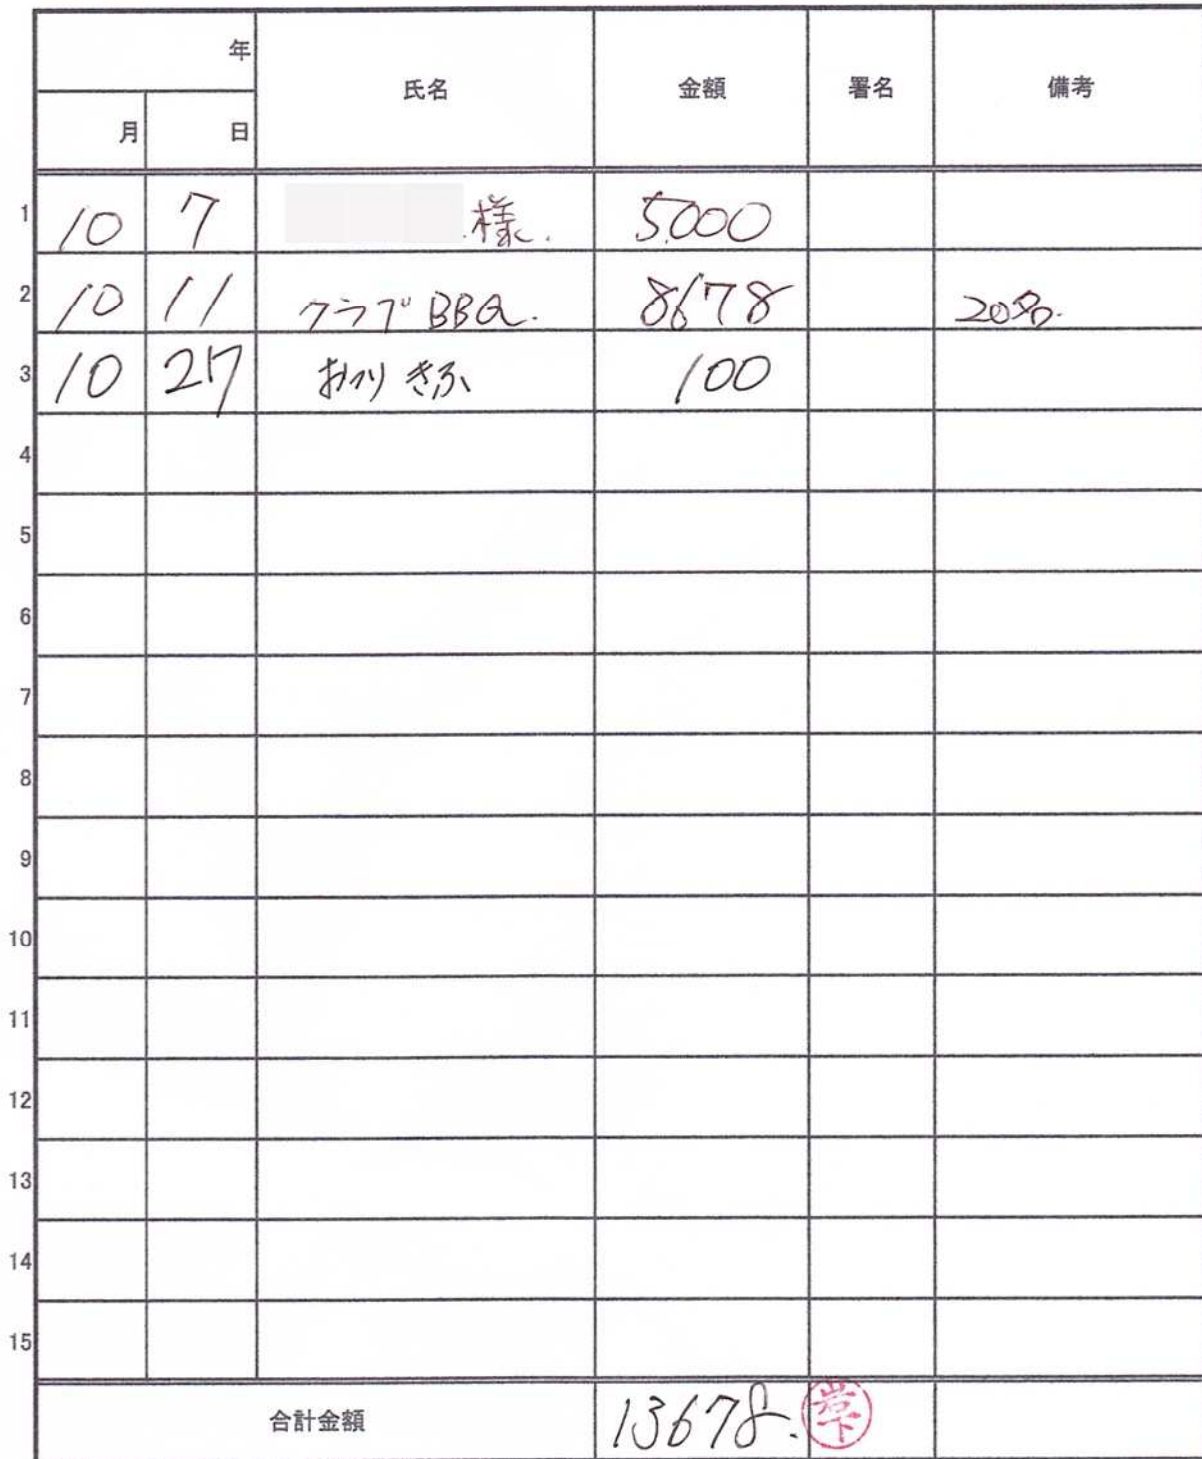 年
月 日 氏名 金額 署名 備考
1 10 7 様. 5000
2 10 11 クラブBBQ. 8678 20名.
3 10 27 おつり きふ 100
4
5
6
7
8
9
10
11
12
13
14
15
合計金額 13678. 岩下